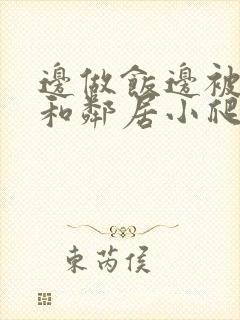 邊做飯邊被
和鄰居小爬
東芮侯